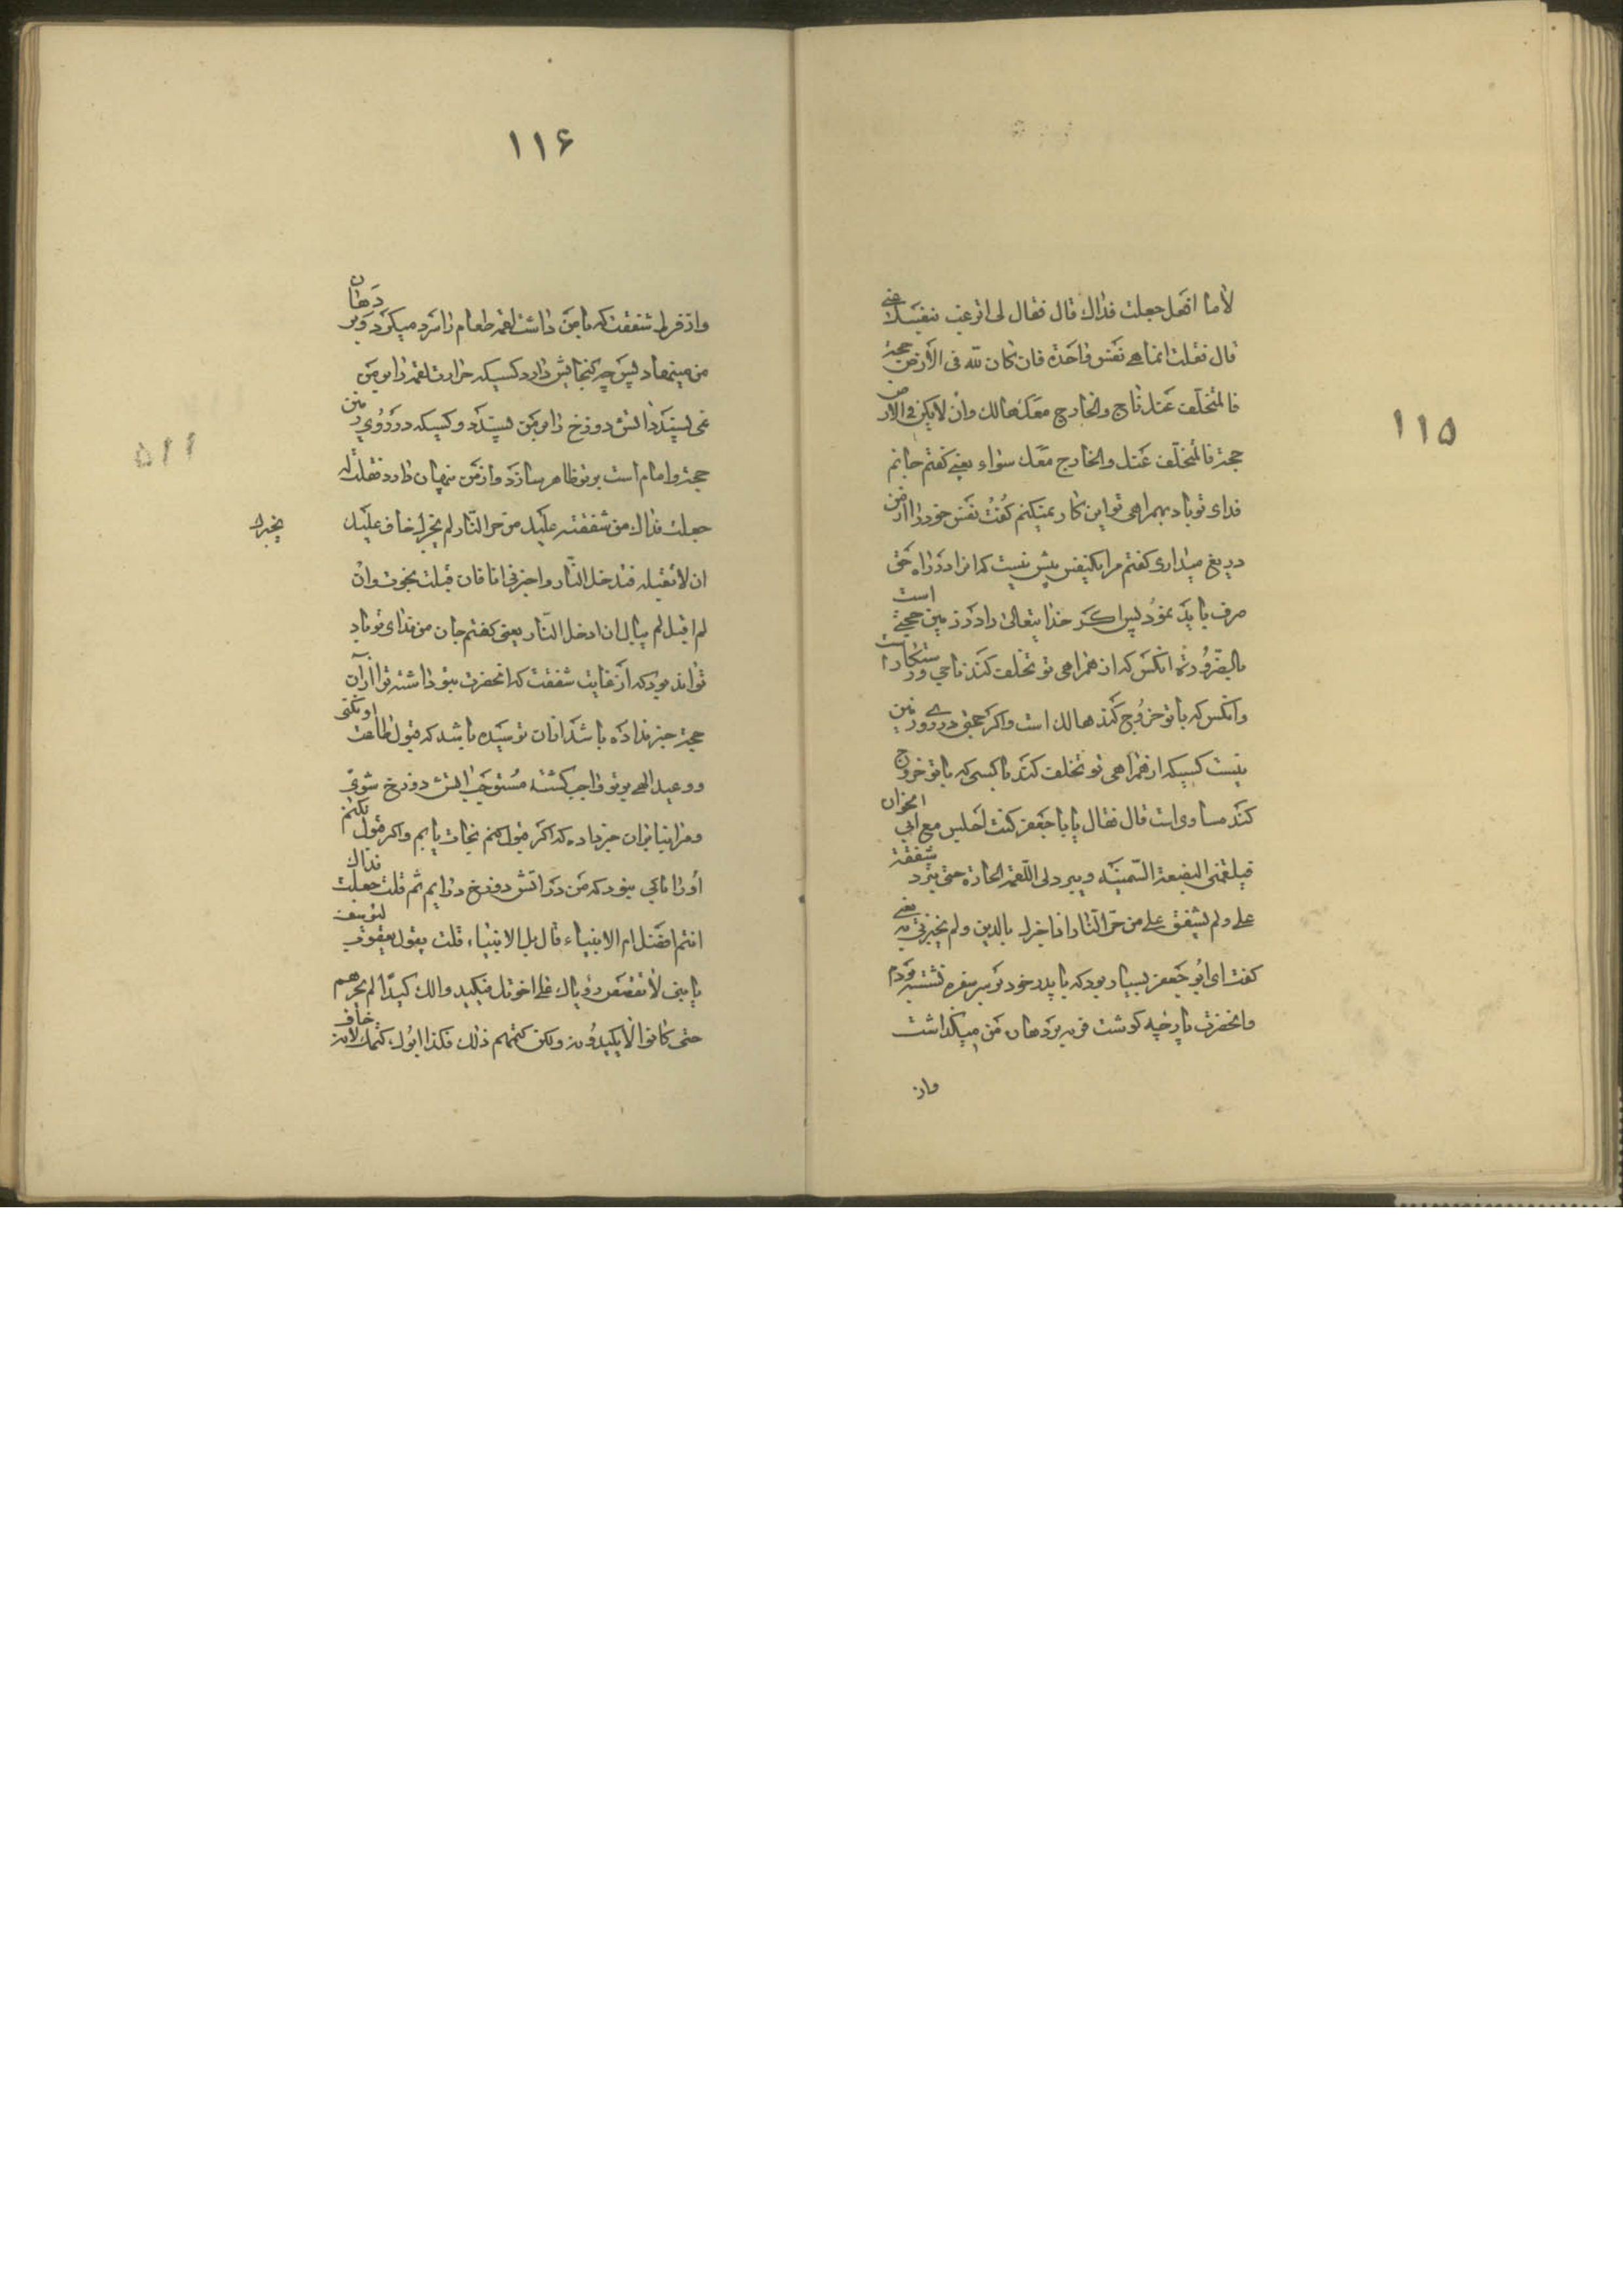 ۱۱۵
لا ما افعل جعلت فداك قال فقال لی اترغب بنفسك عنی
قال فقلت انما هی نفس واحدة فان کان لله فی الارض حجة
فالمتخلف عنك ناج والخارج معك هالك وان لا یکن فی الارض
حجة فالمتخلف عنك والخارج معك سواء یعنی کفتم جانم
فدای تو باد بهمراهی تو این کار نمیکنم کفت نفس خود را از من
دریغ میداری کفتم مرا یکنفس بیش نیست که انرا در راه حق
صرف باید نمود پس اکر خدایتعالی را در زمین حجتی است
بالضروره انکس که از همراهی تو تخلف کند ناجی ورستکار است
وانکس که با تو خروج کند هالك است واکر حجتی در روی زمین
نیست کسیکه از همراهی تو تخلف کند با کسی که با تو خروج
کند مساوی است قال فقال یا با جعفر کنت اجلس مع ابی الخوان
فیلقمنی البضعة السمینه ویبرد لی اللقمة الحارة حتی تبرد شفقة
علی ولم یشفق علی من حر النار اذا اخبرك بالدین ولم یخبرنی به یعنی
کفت ای ابو جعفر بسیار بود که با پدر خود بر سر سفره نشسته بودم
وانحضرت پارچه کوشت فربه بر دهان من میکذاشت
واز
۱۱۶
واز فرط شفقت که با من داشت لقمه طعام را سرد میکرد وبر دهان
من مینهاد پس چه کنجایش دارد کسیکه حرارت لقمه را بر من
نمی پسندد اتش دوزخ را بر من پسندد وکسیکه در روی زمین
حجة وامام است بر تو ظاهر سازد واز من پنهان دارد فقلت له
جعلت فداك من شفقته علیك من حر النار لم یخبرك خاف علیك
یخبرك
ان لا تقبله فتدخل النار واخبرنی انا فان قبلت نجوت وان
لم اقبل لم یبال ان ادخل النار یعنی کفتم جان من فدای تو باد
تواند بود که از غایت شفقت که انحضرت بتو داشته ترا از آن
حجة خبر نداده باشد از ان ترسیده باشد که قبول طاعت او نکنی
ووعید الهی بر تو واجب کشته مستوجب اتش دوزخ شوی
ومرا بنابران خبر داده که اکر قبول کنم نجات یابم واکر قبول نکنم
او را باکی نبود که من در اتش دوزخ درایم ثم قلت جعلت فداك
انتم افضل ام الانبیاء قال بل الانبیاء قلت یقول یعقوب لیوسف
یا بنی لا تقصص رؤیاك علی اخوتك فیکیدوا لك کیدا لم یخبرهم
حتی کانوا لا یکیدونه ولکن کتمهم ذلك فکذا ابوك کتمك لانه خاف
۱۱۵